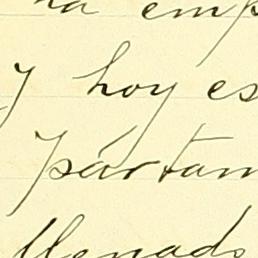 ha emp
y hoy es
pártam
llenado